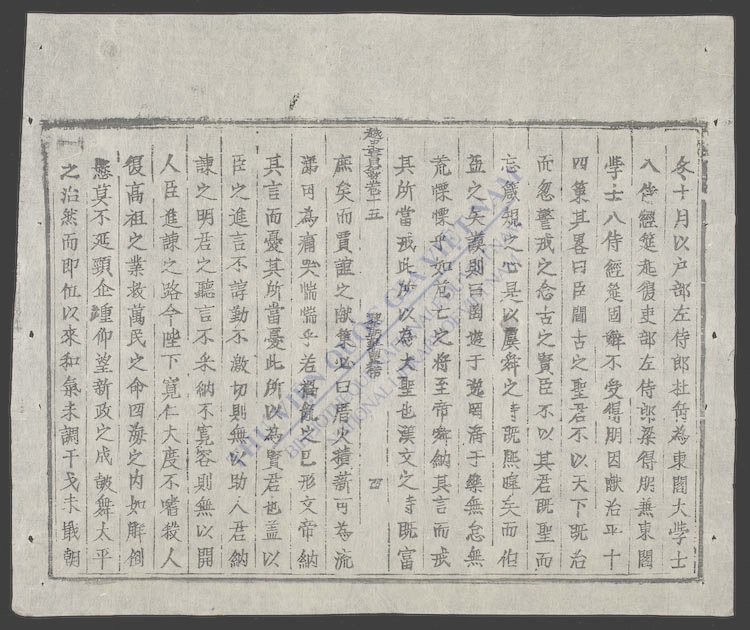 冬十月以户部左侍郎杜為東閣大學士
入侍經筵起復吏部左侍郎梁得朋兼東閣
學士入侍經筵固辭不受得朋因献治平十
四策其畧曰臣聞古之聖君不以天下既治
而忽警戒之念古之賢臣不以其君既聖而
忘箴規之心是以虞舜之時既熙皥矣而伯
益之矢謨則曰罔遊于逸罔滛于樂無怠無
荒慄慄乎如危亡之將至帝舜納其言而戒
其所當戒此所以為大聖也漢文之時既富
越史卷十五
庶矣而賈誼之献策必曰厝火積薪可為流
涕可為痛哭惴惴乎若禍亂之已形文帝納
其言而憂其所當憂此所以為賢君也盖以
臣之進言不諄勤不激切則無以助人君納
諫之明君之聽言不采納不寬容則無以開
人臣進諫之路今陛下寬仁大度不嗜殺人
復高祖之業救萬民之命四海之内如解倒
懸莫不延頸企踵仰望新政之成鼓舞太平
之治然而即位以來和氣未調干戈未戢朝
THƯ VIỆN QUỐC GIA VIỆT NAM
BIBLIOTHÈQUE NATIONALE DU VIETNAM
NATIONAL LIBRARY OF VIETNAM